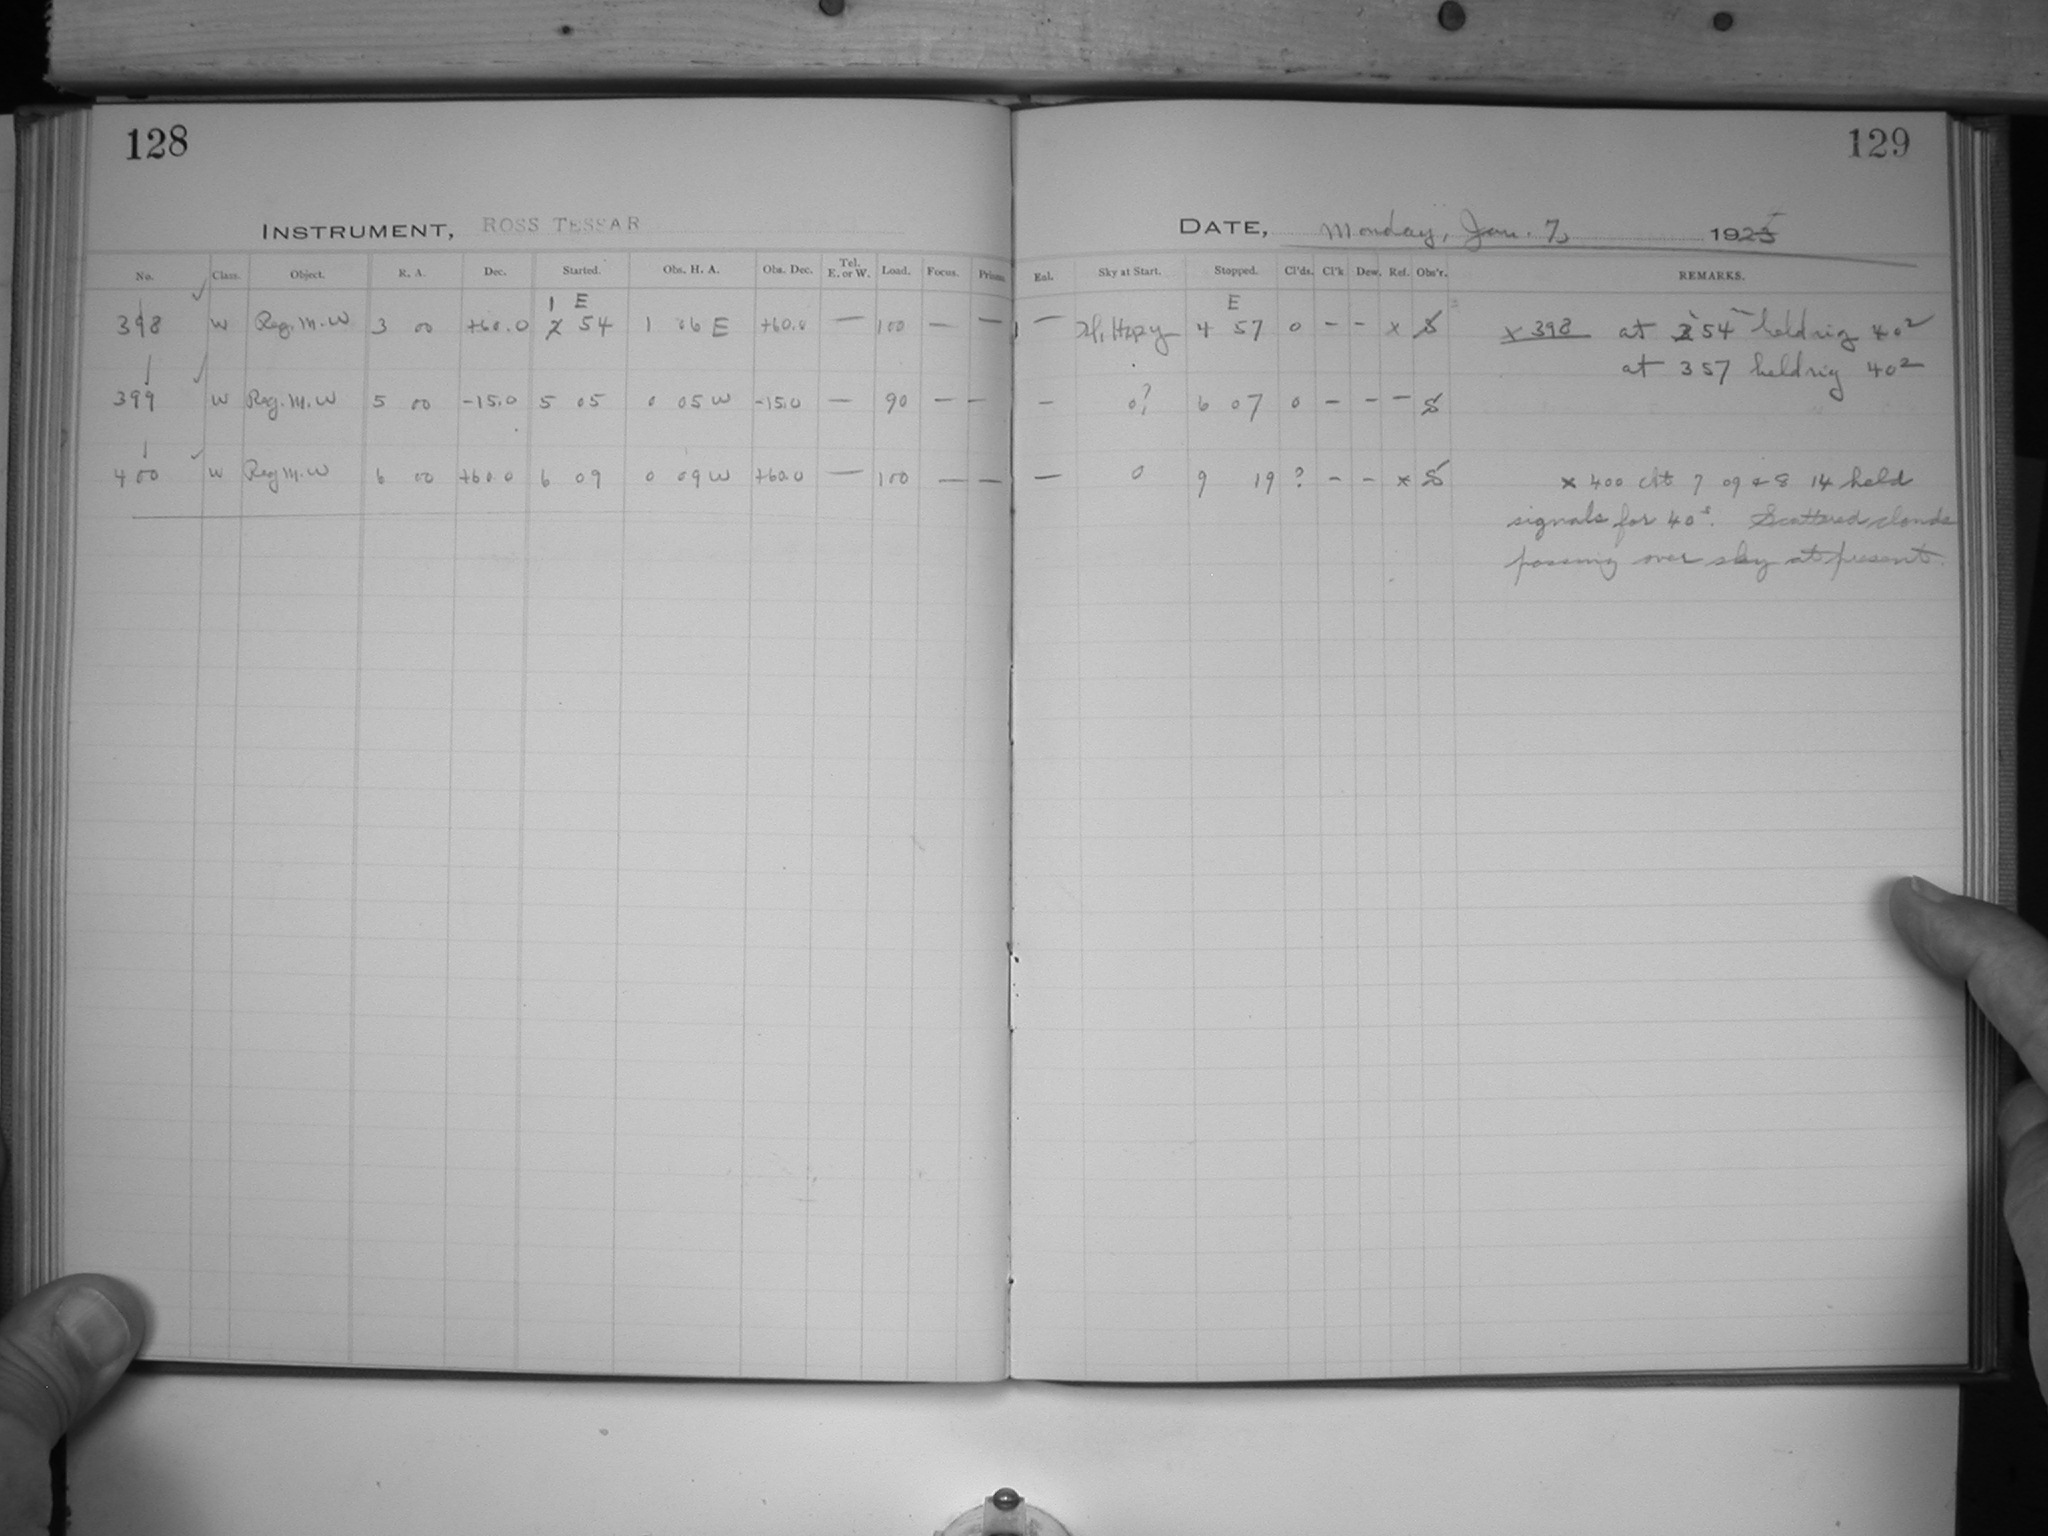 128
129
INSTRUMENT, ROSS TESSAR
DATE, Monday, Jan. 7, 1925
No. Class. Object. R. A. Dec. Started. Obs. H. A. Obs. Dec. Tel. E. or W. Load. Focus. Prisms.
Eml. Sky at Start. Stopped. Cl'ds. Cl'k Dew. Ref. Obs'r. REMARKS.
1 E
E
398 W Reg. M. W 3 00 +60.0 2 54 1 06 E +60.0 — 100 — —
— Sl. Hazy 4 57 0 - - x S x 398 at 2 54 held rig 40s
at 3 57 held rig 40s
399 W Reg. M. W 5 00 -15.0 5 05 0 05 W -15.0 — 90 — —
— 0? 6 07 0 - - - S
400 W Reg M. W 6 00 +60.0 6 09 0 09 W +60.0 — 100 — —
— 0 9 19 ? - - x S x 400 At 7 09 & 8 14 held
signals for 40s. Scattered clouds
passing over sky at present.